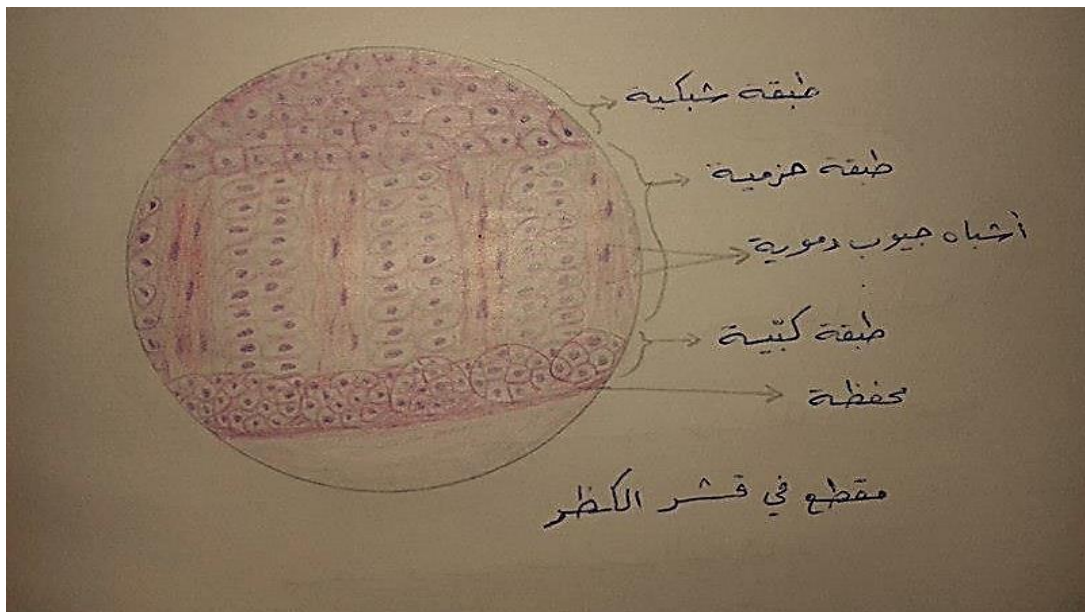 طبقة شبكية
طبقة حزمية
أشباه جيوب دموية
طبقة كبّية
محفظة
مقطع في قشر الكظر